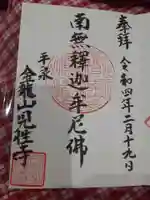 奉拝 令和四年二月十九日
南無釋迦牟尼佛
金龍山見性寺